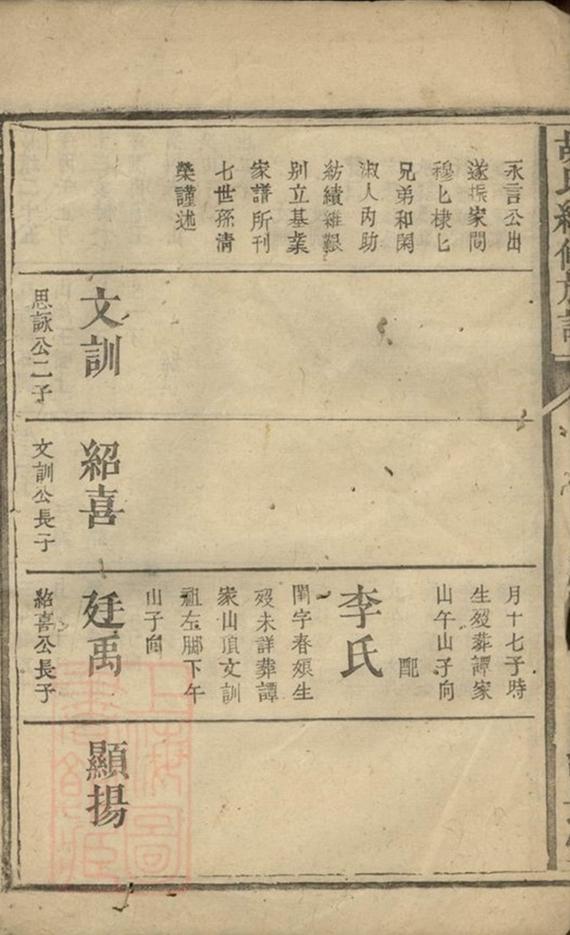 永言公出
遂振家問
穆匕棣匕
兄弟和閑
淑人內助
紡績維艱
別立基業
家譜所刊
七世孫清
榮謹述
文訓
思詠公二子
紹喜
文訓公長子
月十七子時
生歿葬譚家
山午山子向
配
李氏
閨字春娘生
歿未詳葬譚
家山頂文訓
祖左脚下午
山子向
廷禹
紹喜公長子
顯揚